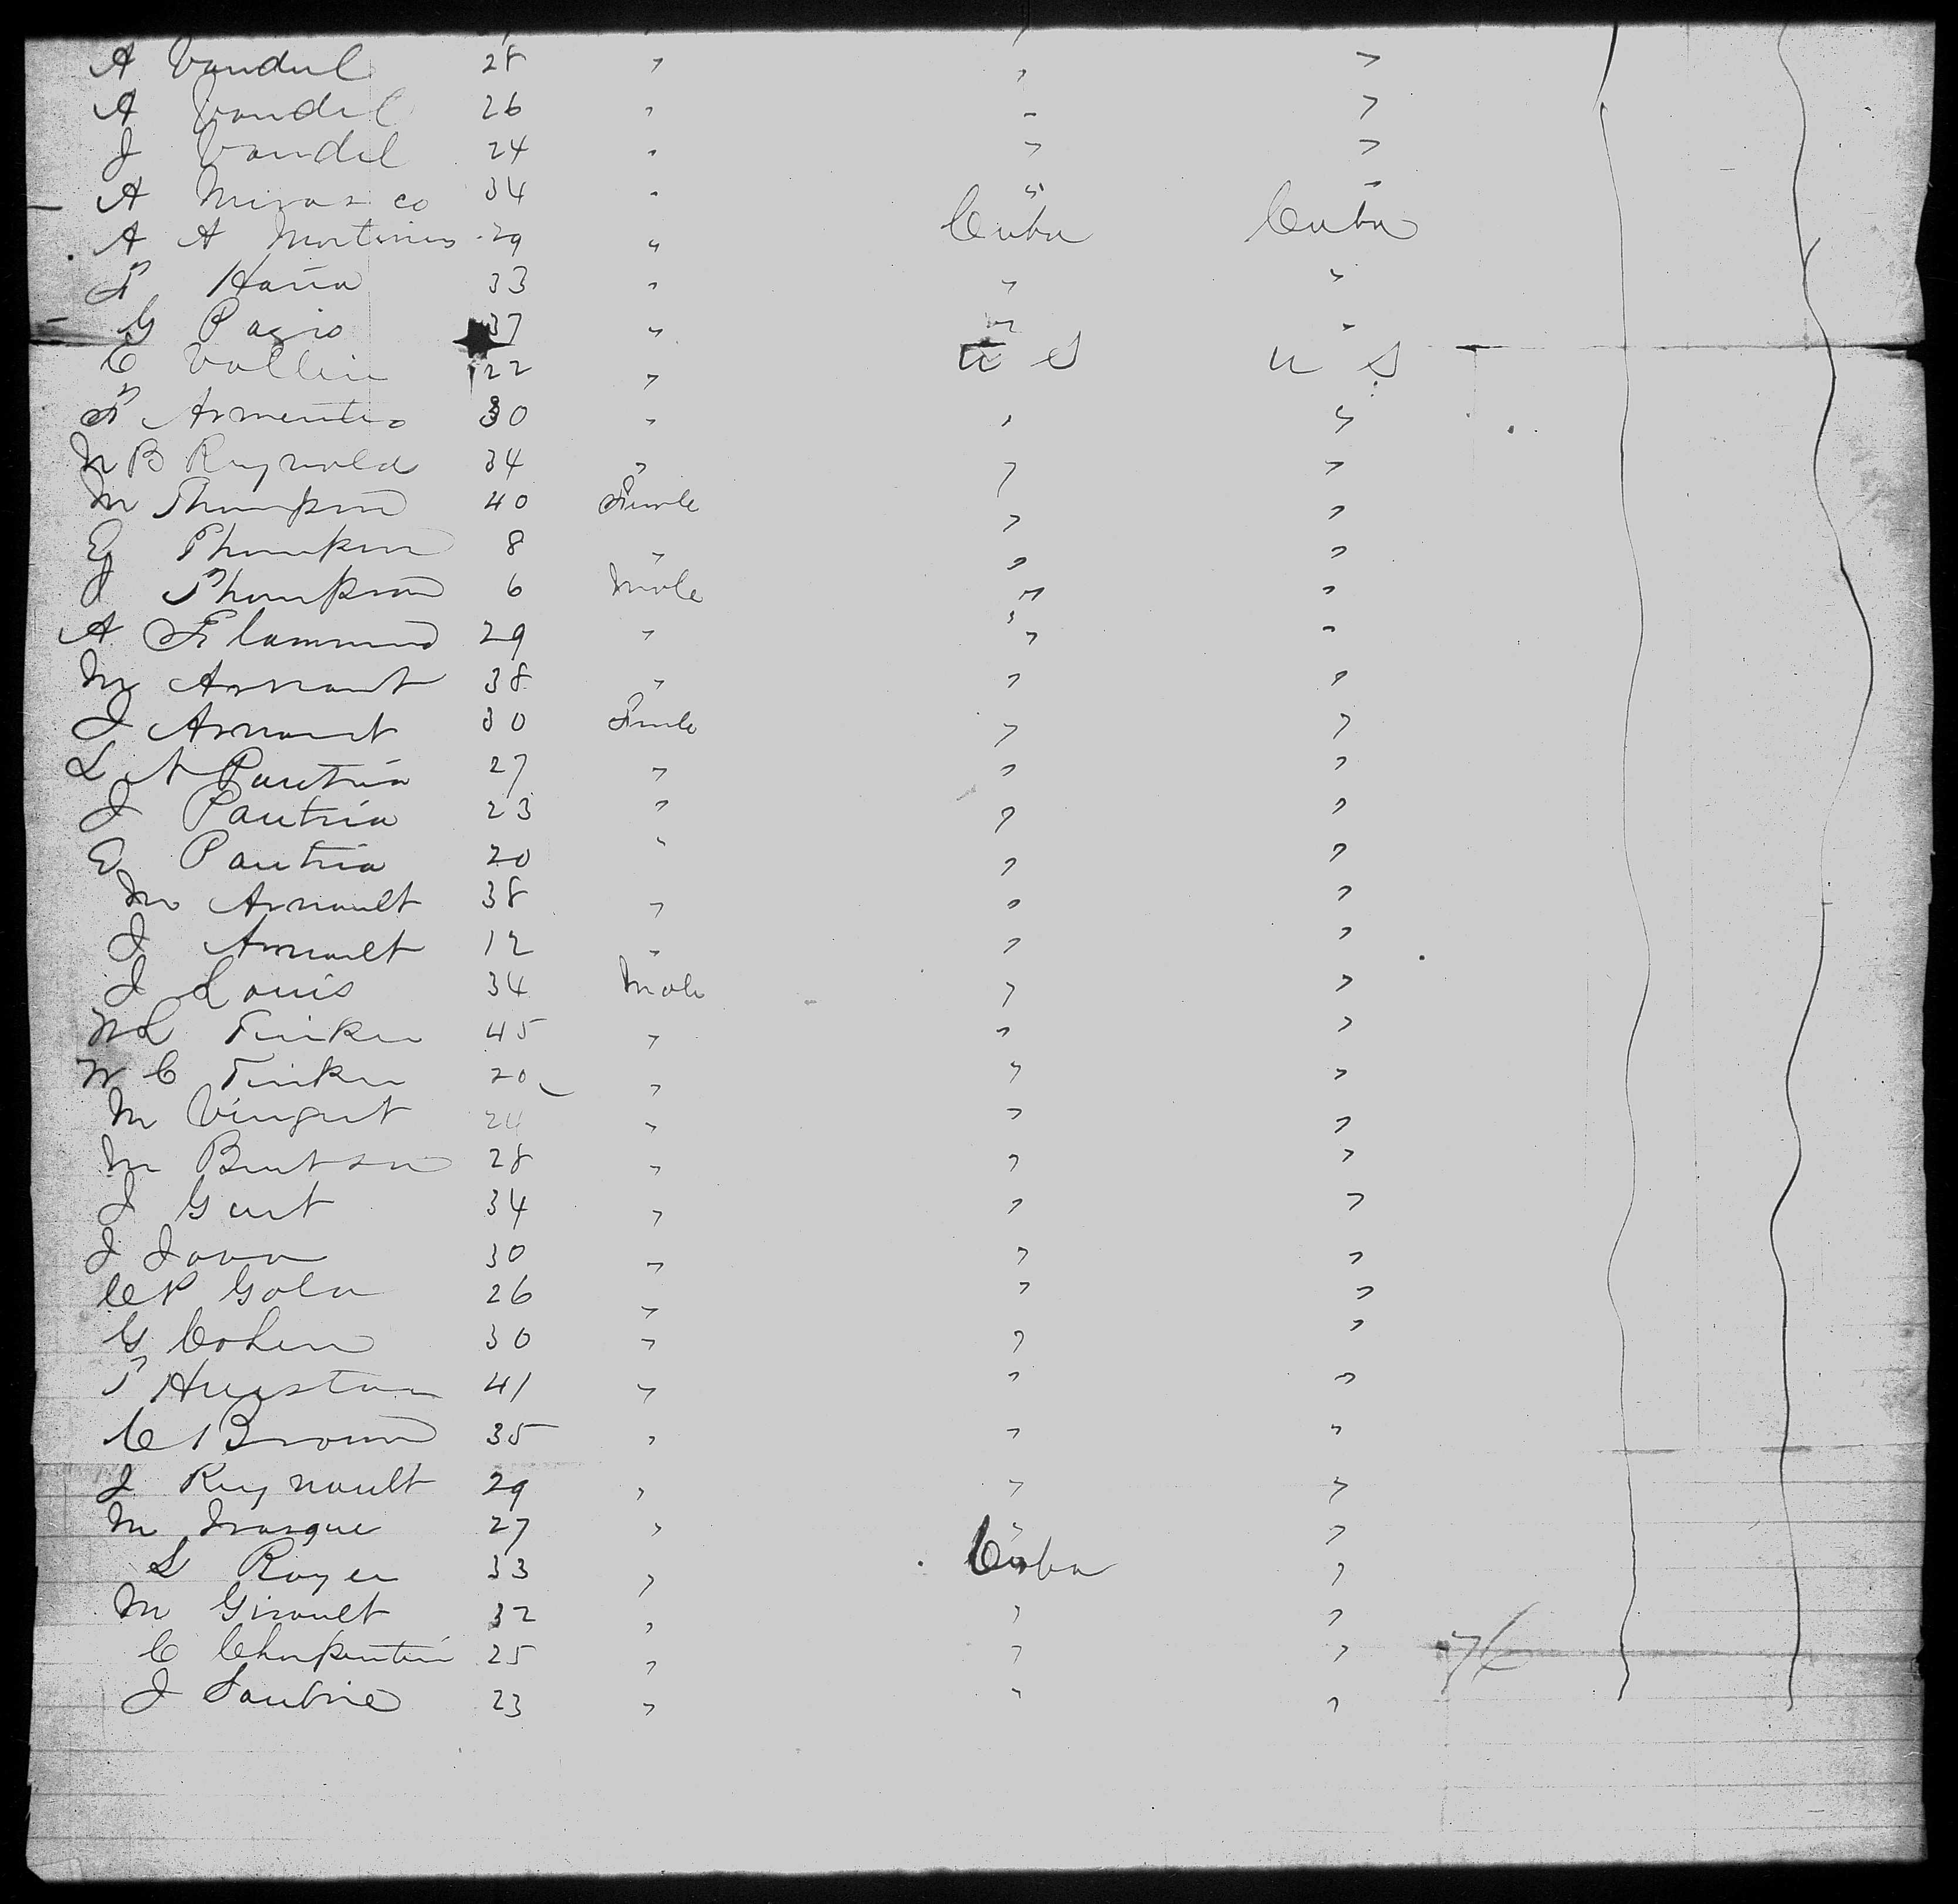 A Vandul 28 " " "
A Vandel 26 " " "
J Vandel 24 " " "
A 34 " " "
A A Martinis 29 " Cuba Cuba
F Haña 33 " " "
G Pazio 37 " " "
C Vallein 22 " U S U S
F Armenteo 30 " " "
N B Reynold 34 " " "
M Thompson 40 Female " "
E Thompson 8 " " "
J Thompson 6 Male " "
A Flammand 29 " " "
M Arnault 38 " " "
J Arnault 30 Female " "
L A Pautria 27 " " "
J Pautria 23 " " "
E Pautria 20 " " "
M Arnault 38 " " "
J Arnault 12 " " "
J Louis 34 Male " "
N L Tinker 45 " " "
W C Tinker 20 " " "
M Vingut 24 " " "
M 28 " " "
J Gent 34 " " "
J Jova 30 " " "
C P Gola 26 " " "
G Cohen 30 " " "
T Hueston 41 " " "
C Brown 35 " " "
J Reynault 29 " " "
M 27 " " "
L Royer 33 " Cuba "
M Girault 32 " " "
C Charpentier 25 " " " 76
J Sautrie 23 " " "